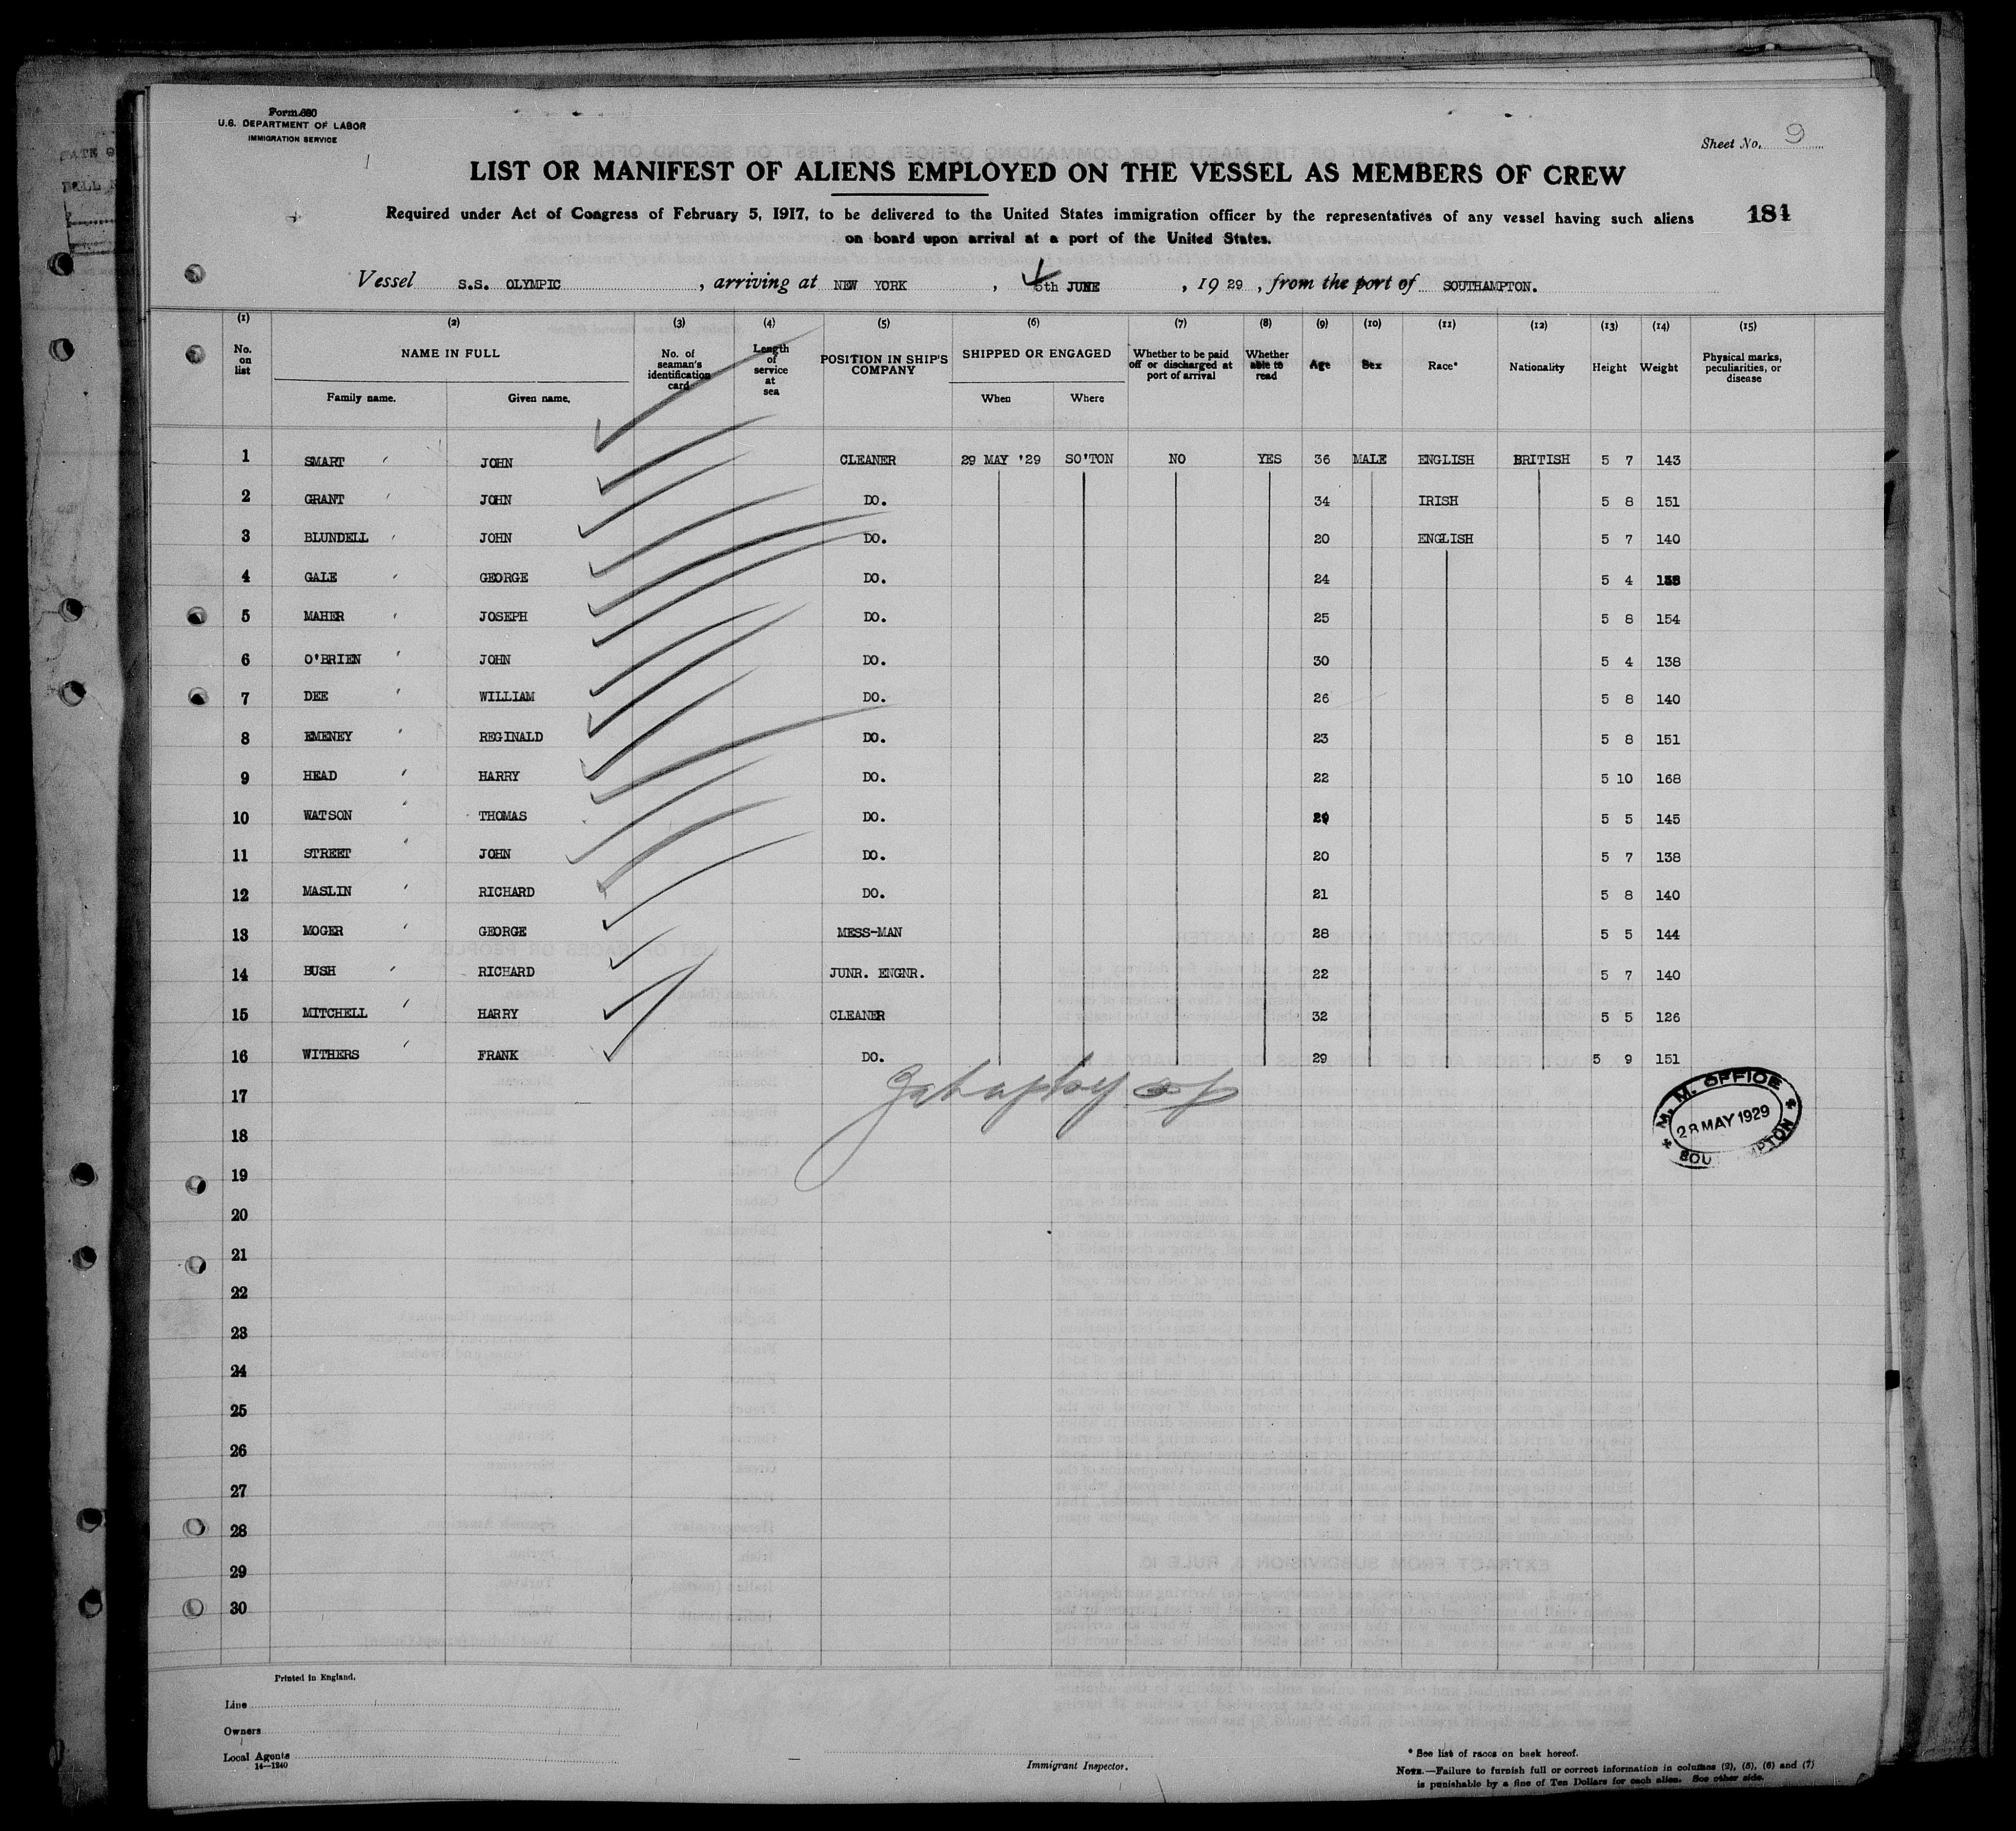 Form 680
U.S. DEPARTMENT OF LABOR
IMMIGRATION SERVICE
Sheet No. 9
LIST OR MANIFEST OF ALIENS EMPLOYED ON THE VESSEL AS MEMBERS OF CREW
Required under Act of Congress of February 5, 1917, to be delivered to the United States immigration officer by the representatives of any vessel having such aliens
on board upon arrival at a port of the United States.
181
Vessel S.S. OLYMPIC, arriving at NEW YORK, 5th JUNE, 1929, from the port of SOUTHAMPTON.
(1) (2) (3) (4) (5) (6) (7) (8) (9) (10) (11) (12) (13) (14) (15)
No. on list NAME IN FULL No. of seaman's identification card Length of service at sea POSITION IN SHIP'S COMPANY SHIPPED OR ENGAGED Whether to be paid off or discharged at port of arrival Whether able to read Age Sex Race* Nationality Height Weight Physical marks, peculiarities, or disease
Family name. Given name. When Where
1 SMART JOHN CLEANER 29 MAY '29 SO'TON NO YES 36 MALE ENGLISH BRITISH 5 7 143
2 GRANT JOHN DO. 34 IRISH 5 8 151
3 BLUNDELL JOHN DO. 20 ENGLISH 5 7 140
4 GALE GEORGE DO. 24 5 4
5 MAHER JOSEPH DO. 25 5 8 154
6 O'BRIEN JOHN DO. 30 5 4 138
7 DEE WILLIAM DO. 26 5 8 140
8 EMENEY REGINALD DO. 23 5 8 151
9 HEAD HARRY DO. 22 5 10 168
10 WATSON THOMAS DO. 5 5 145
11 STREET JOHN DO. 20 5 7 138
12 MASLIN RICHARD DO. 21 5 8 140
13 MOGER GEORGE MESS-MAN 28 5 5 144
14 BUSH RICHARD JUNR. ENGNR. 22 5 7 140
15 MITCHELL HARRY CLEANER 32 5 5 126
16 WITHERS FRANK DO. 29 5 9 151
17
M. M. OFFICE
28 MAY 1929
18
19
20
21
22
23
24
25
26
27
28
29
30
Printed in England.
Line
Owners
Local Agents
14—1240
Immigrant Inspector.
* See list of races on back hereof.
NOTE.—Failure to furnish full or correct information in columns (2), (5), (6) and (7)
is punishable by a fine of Ten Dollars for each alien. See other side.